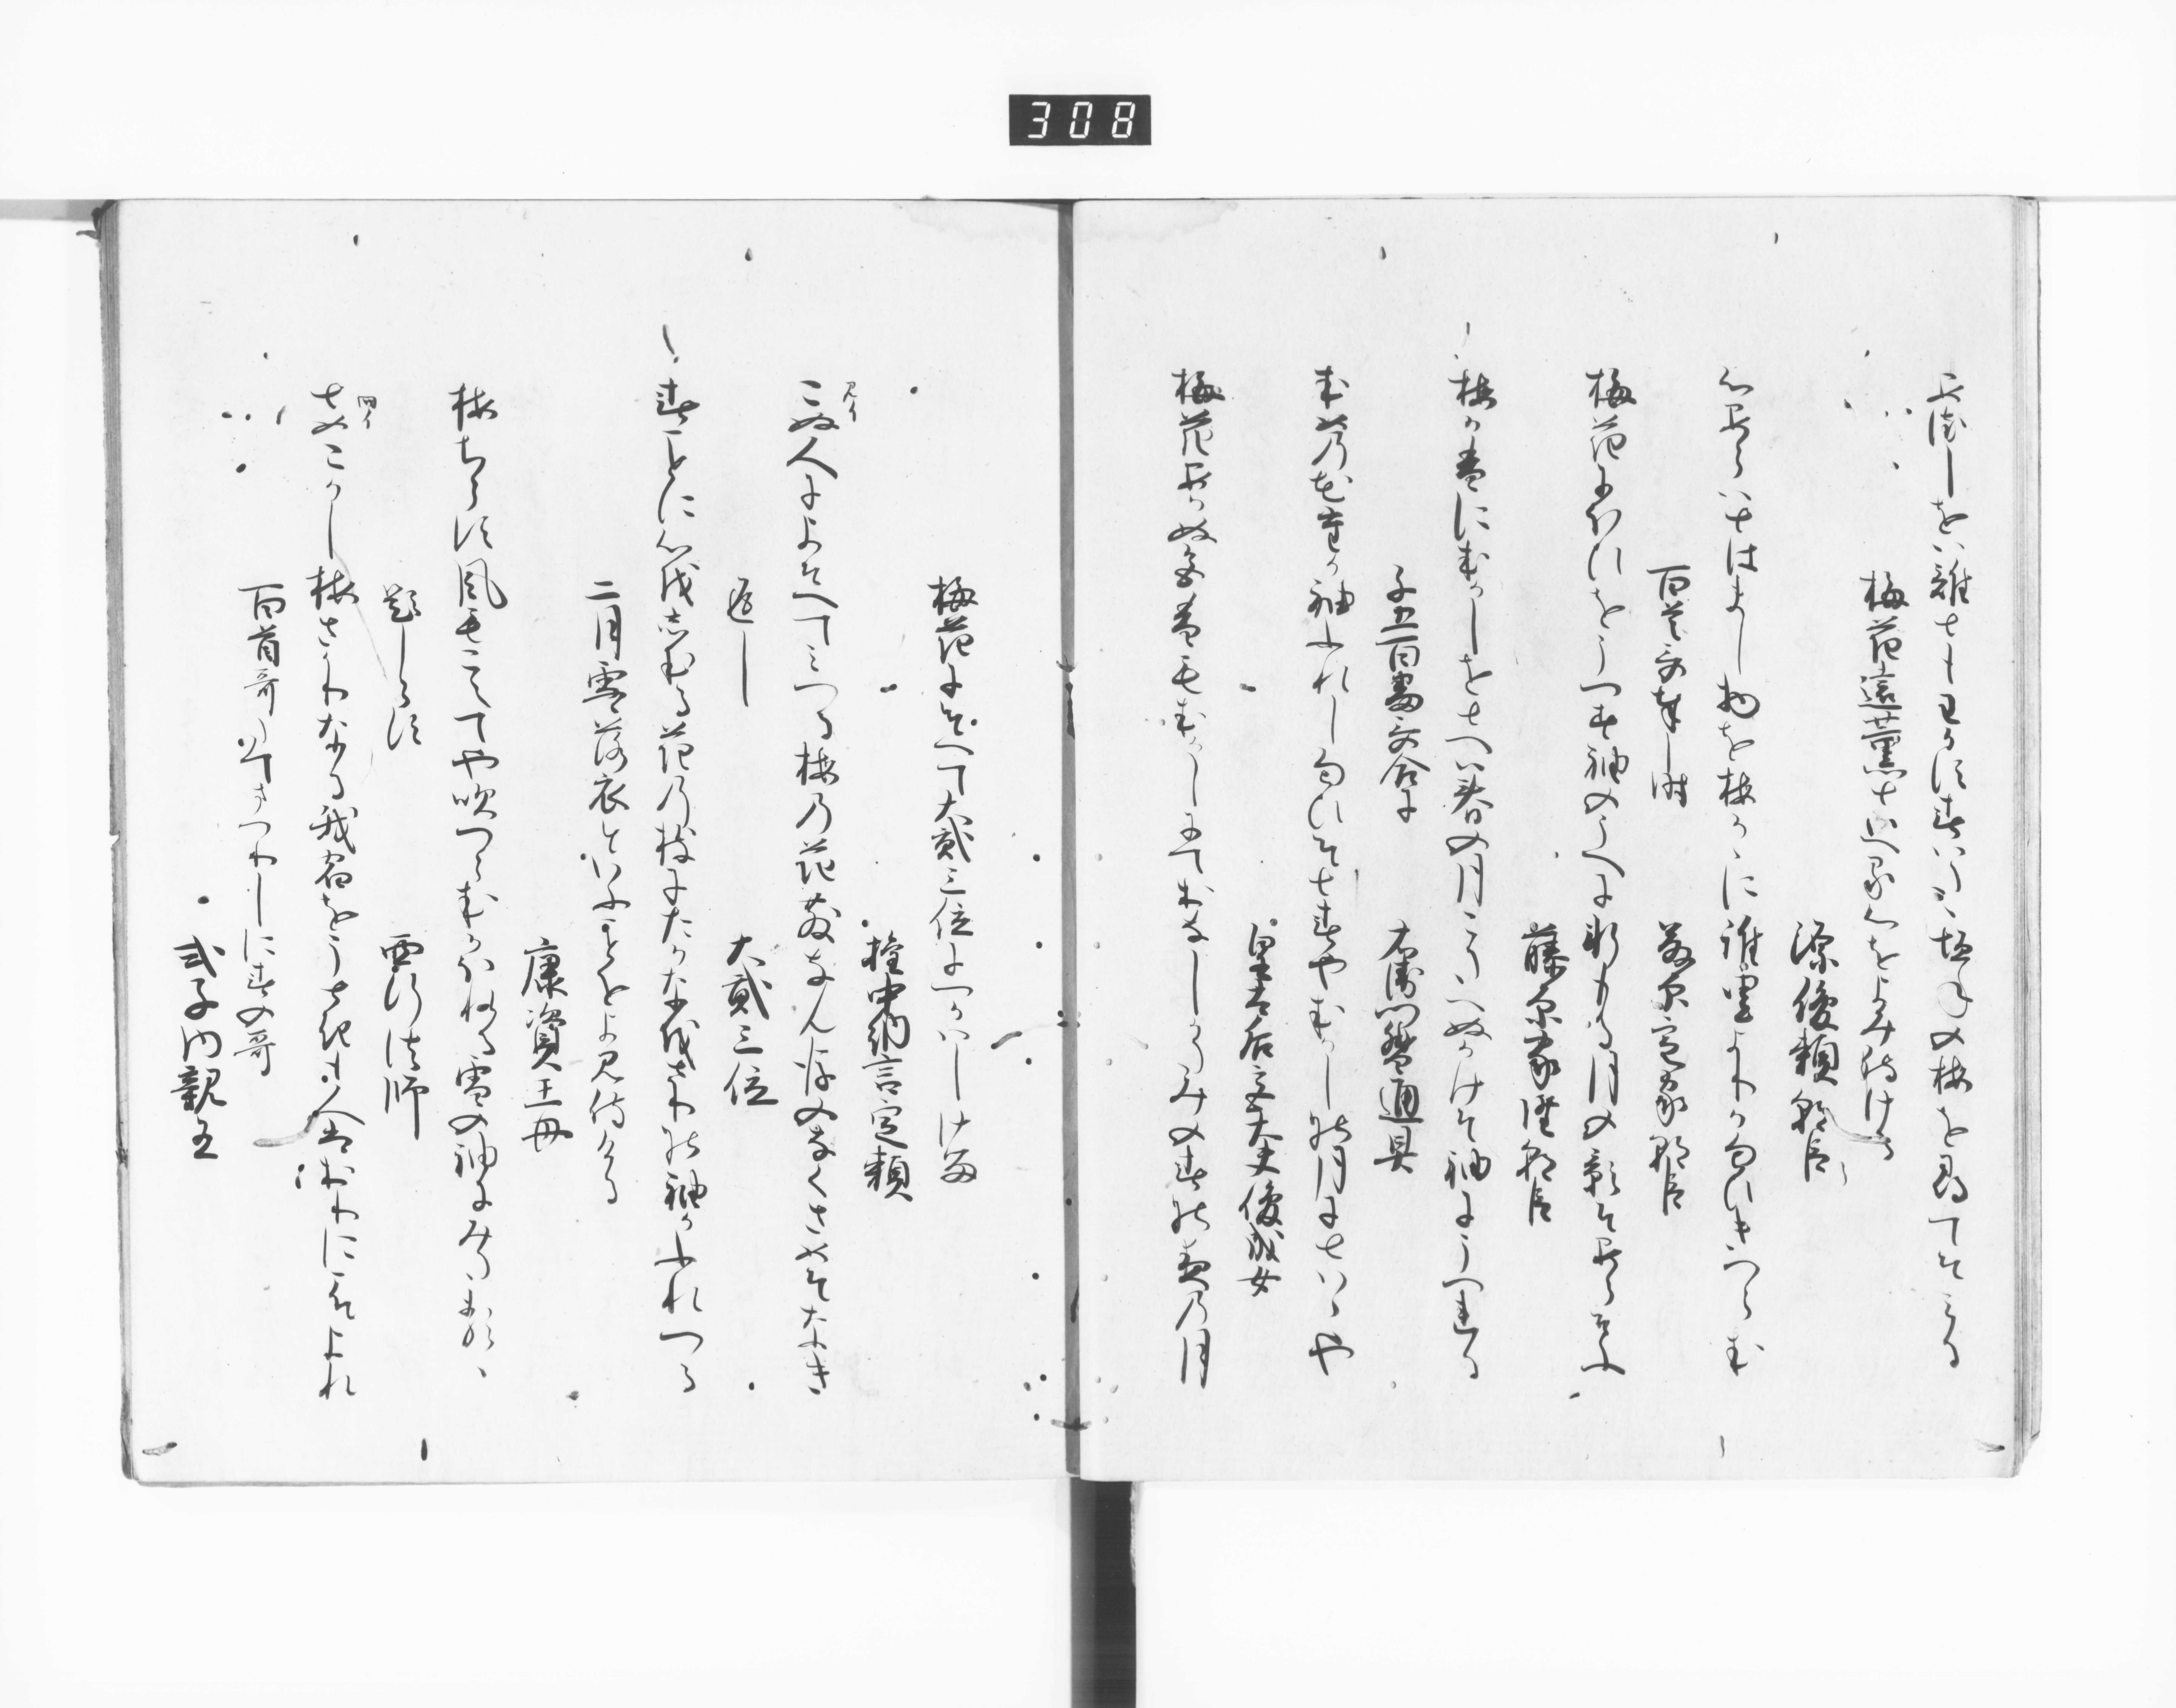 308
とめ
梅花遠薫といへる心をよみ侍ける
源俊頼朝臣
心あらはとはまし物を梅かゝに誰里よりか匂ひきつらむ
百首哥奉し時
藤原定家朝臣
梅花にほひをうつす袖のうへに軒もる月の影そあらそふ
藤原家隆朝臣
梅か香にむかしをとへは春の月こたへぬかけそ袖にうつれる
千五百番哥合に
右衛門督通具
梅花たか袖ふれし匂ひそと春やむかしの月にとはゝや
皇太后宮大夫俊成女
梅花あかぬ色香もむかしにておなしかたみの春の夜の月
梅花にそへて大貳三位につかはしける
権中納言定頼
こぬ人によそへてみつる梅の花散なん後のなくさめそなき
返し
大貳三位
春ことに心をしむる花の枝にたかなをさりの袖かふれつる
二月雪落衣といふことをよみ侍ける
康資王母
梅ちらす風もこえてや吹つらむかほれる雪の袖にみたるゝ
題しらす
西行法師
とめこかし梅さかりなる我宿をうときも人はおりにこそよれ
百首哥たてまつりしに春の哥
式子内親王